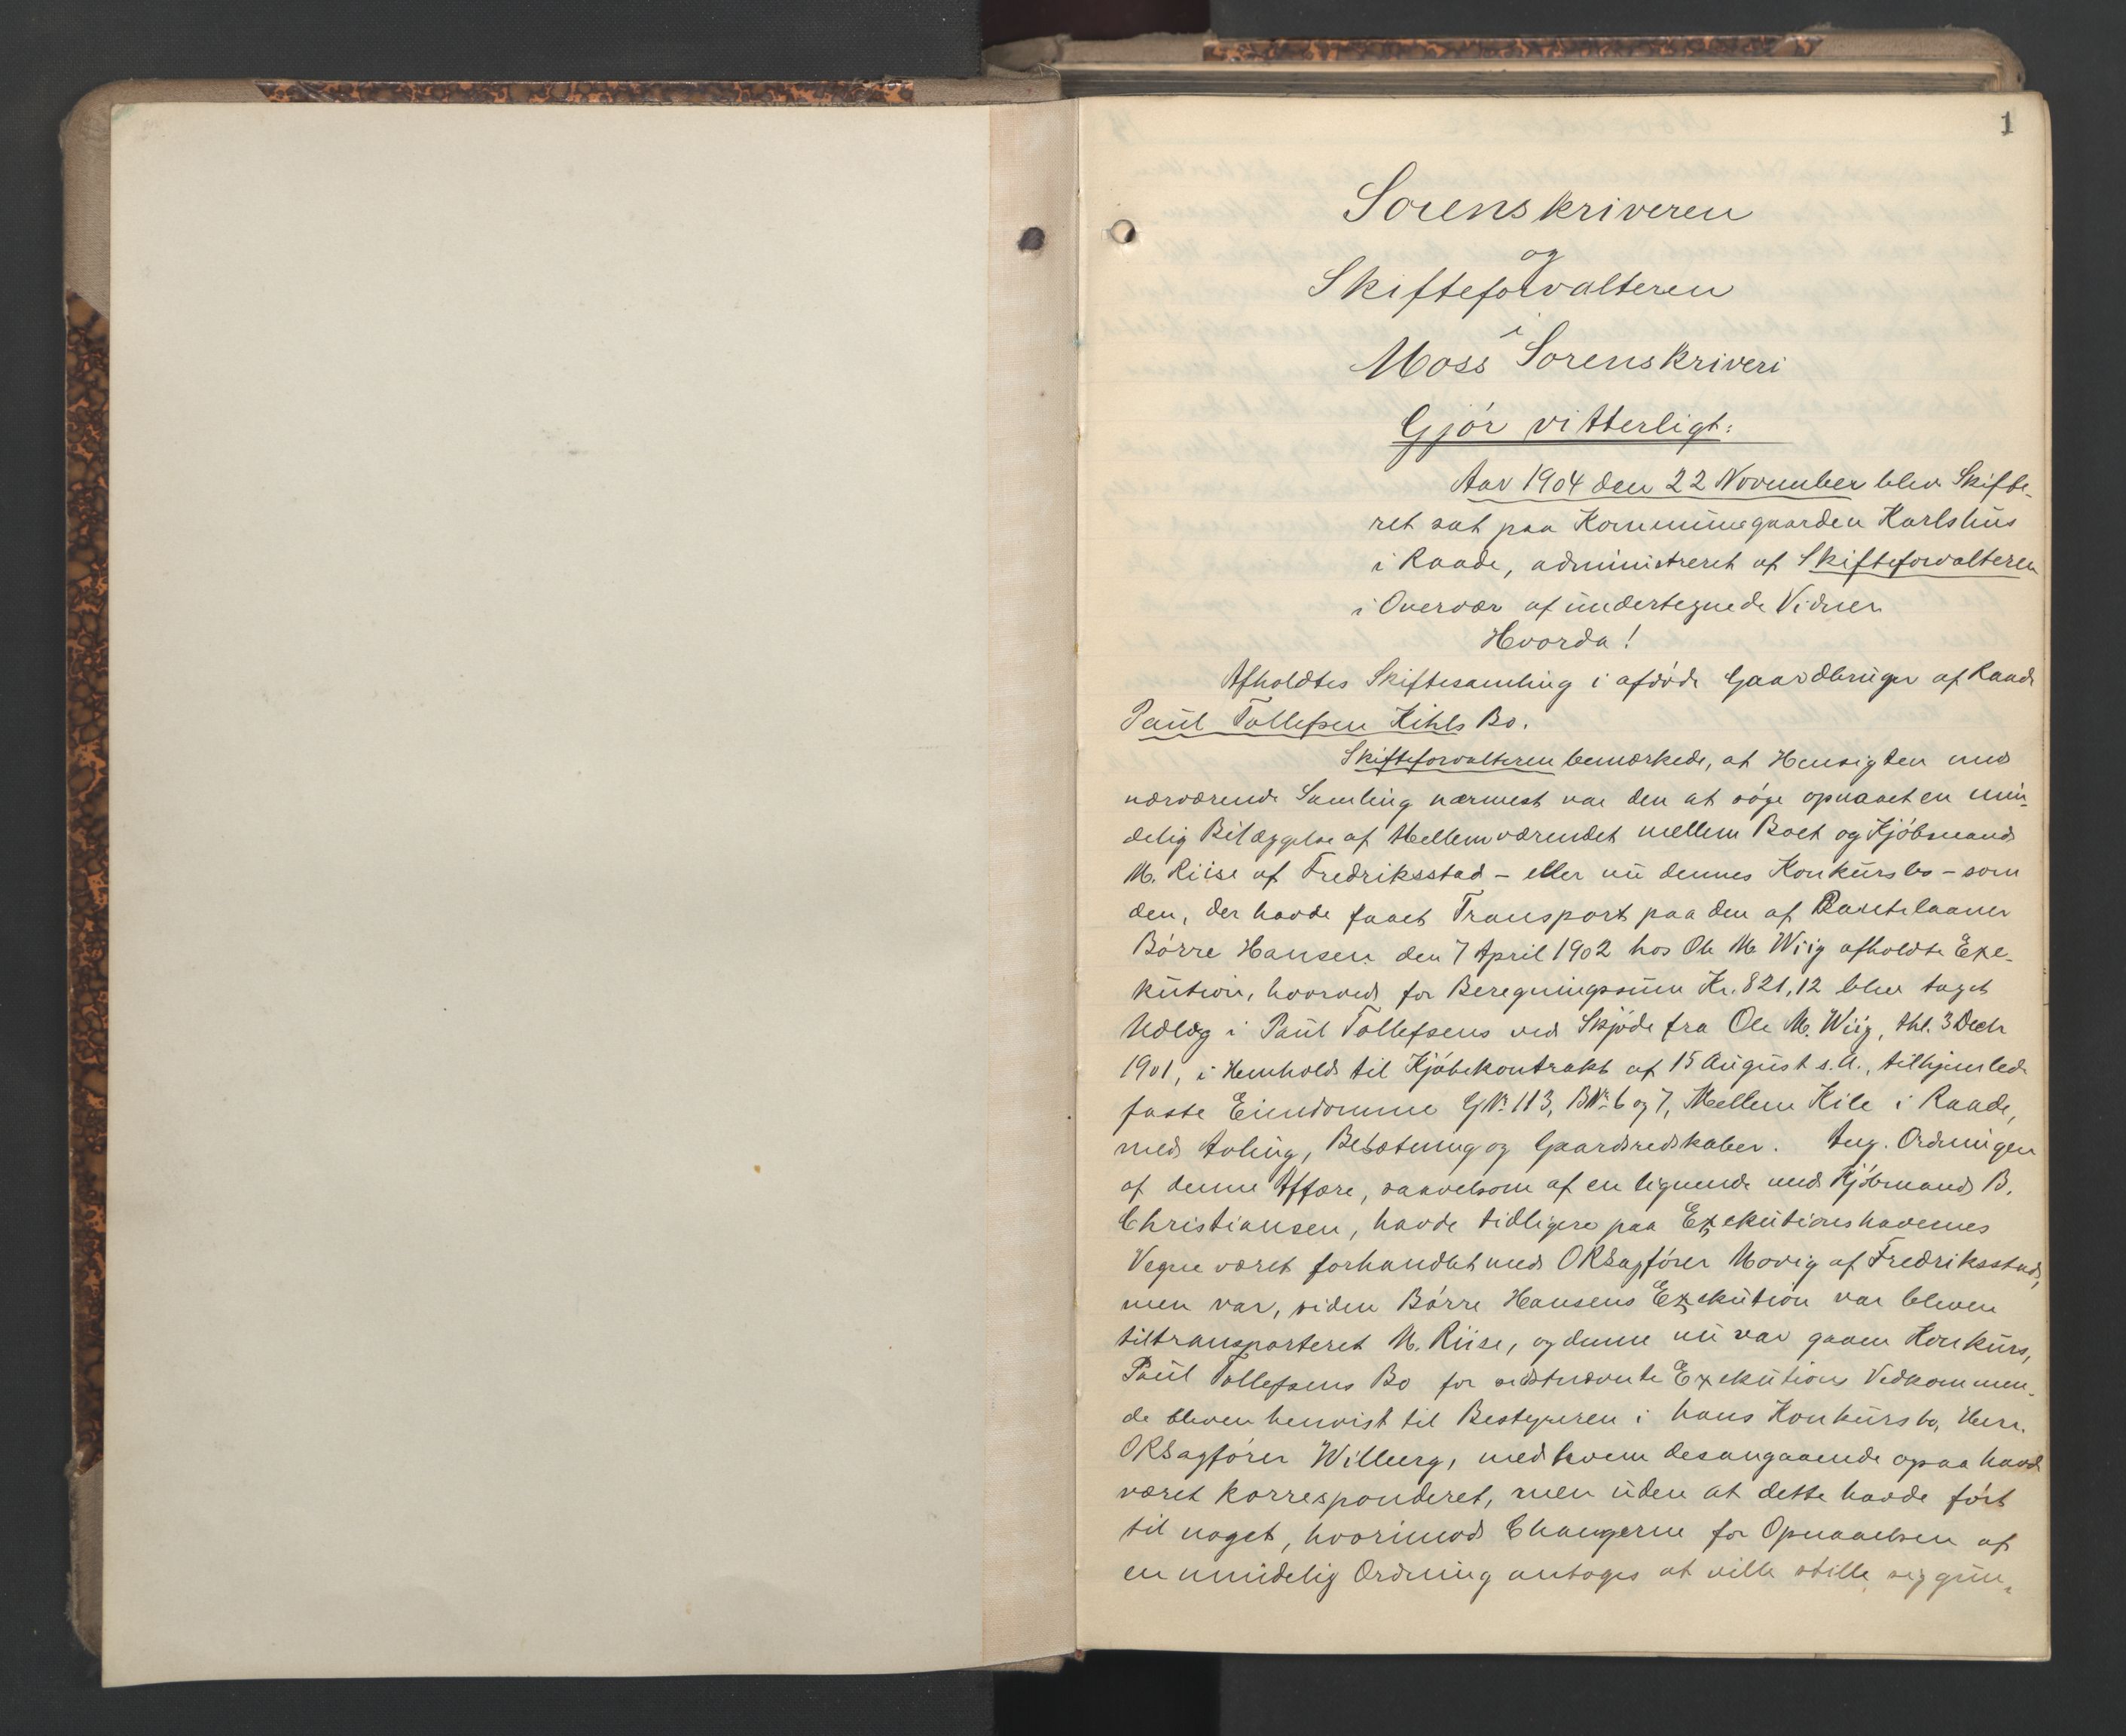 1
Sorenskriveren
og
Skifteforvalteren
i
Moss Sorenskriveri
Gjör vitterligt:
Aar 1904 den 22 November blev Skifte-
ret sat paa Kommunegaarden Karlshus
i Raade, administreret af Skifteforvalteren
i Overvær af undertegnede Vidner
Hvorda!
Afholdtes Skiftesamling i afdöde Gaardbruger af Raade
Paul Tollefsen Kihls Bo.
Skifteforvalteren bemærkede, at Hensigten med
nærværende Samling nærmest var den at söge opnaaet en min-
delig Bilæggelse af Mellemværendet mellem Boet og Kjöbmand
M. Riise af Fredriksstad – eller nu dennes Konkursbo – som
den, der havde faaet Transport paa den af Pantelaaner
Börre Hansen den 7 April 1902 hos Ole M. Wiig afholdte Exe-
kution, hvorved for Beregningssum Kr. 821,12 blev taget
Udlæg i Paul Tollefsens ved Skjöde fra Ole M. Wiig, thl. 3 Decbr
1901, i Henhold til Kjöbekontrakt af 15 August s.A., tilhjemlede
faste Eiendomme GNr. 113, BNr. 6 og 7, Mellem Kile i Raade,
med Avling, Besætning og Gaardsredskaber. Ang. Ordningen
af denne Affære, saavelsom af en lignende med Kjöbmand B.
Christiansen, havde tidligere paa Exekutionshavernes
Vegne været forhandlet med ORSagförer Movig af Fredriksstad,
men var, siden Börre Hansens Exekution var bleven
tiltransporteret M. Riise, og denne nu var gaaen Konkurs,
Paul Tollefsens Bo for sidstnævnte Exekutions Vedkommen-
de bleven henvist til Bestyreren i hans Konkursbo, Herr.
ORSagförer Willung, med hvem desangaaende ogsaa havde
været korresponderet, men uden at dette havde fört
til noget, hvorimod Changerne for Opnaaelsen af
en mindelig Ordning antoges at ville stille sig gun-